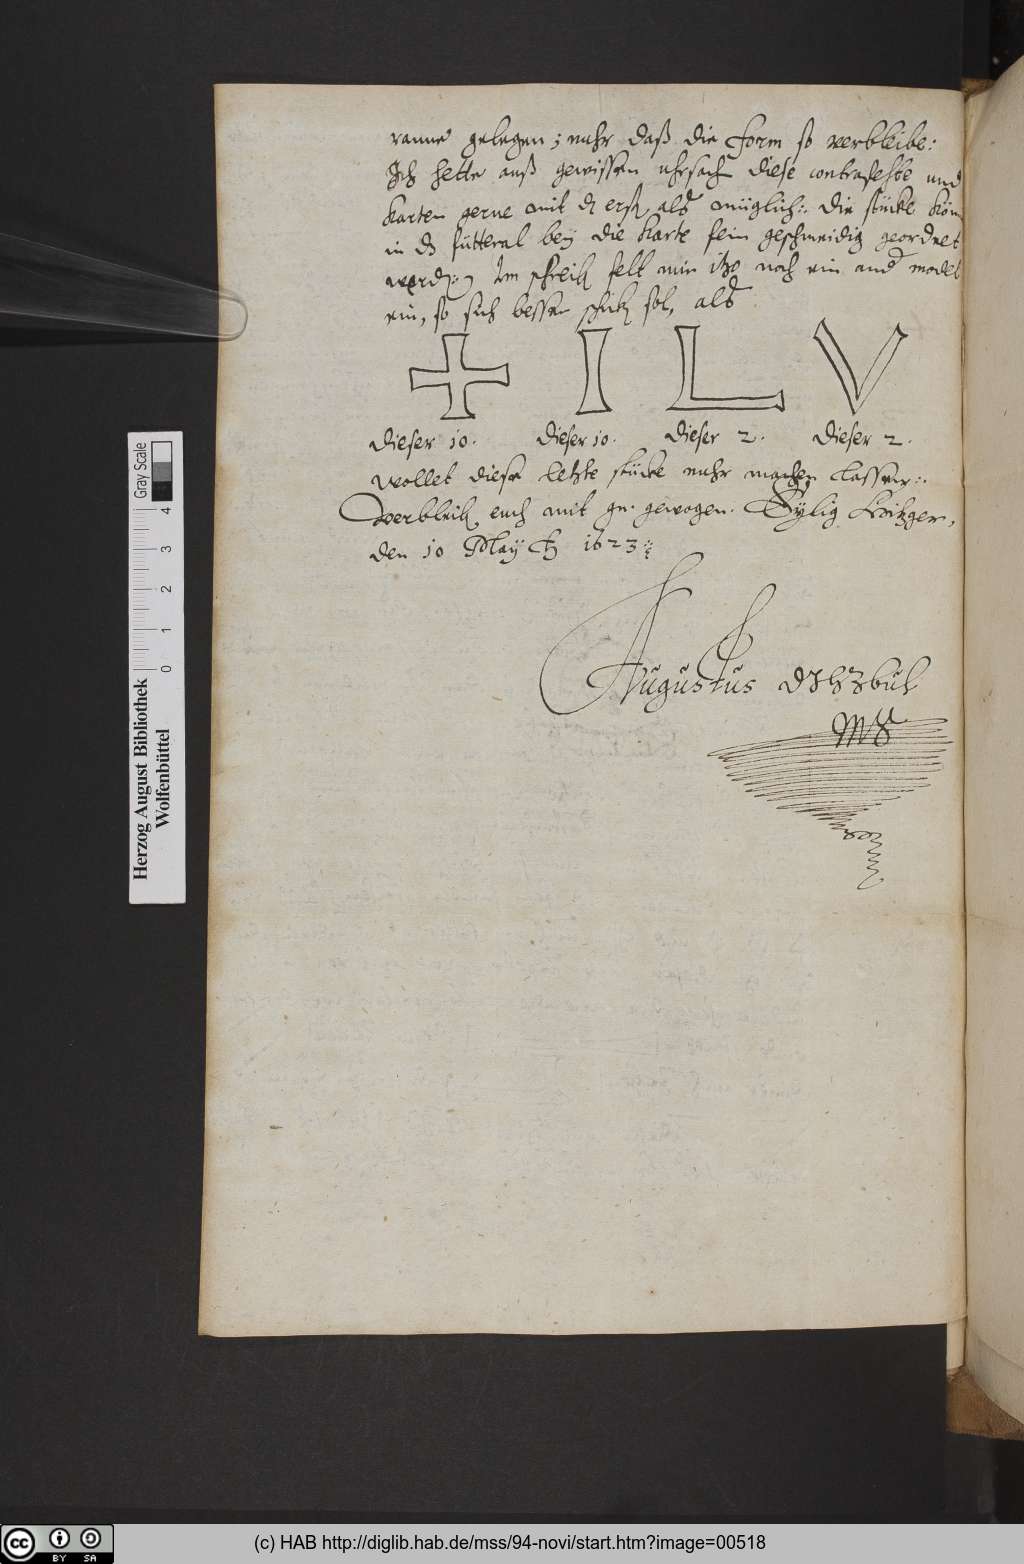 ranne gelegen; nuhr daß die form so verbleibe:
Ich hette auß gewissen uhrsach diese contrafehte und
karten gerne mit d ersten als müglich: die stücke
in d futteral bey die karte fein geschmeidig geordnet
werden: Im schreiben felt mir itzo noch ein and model
ein, so sich besser schicken sol, als
+ I L V
dieser 10. dieser 10. dieser 2. dieser 2.
wollet diese letzte stücke nuhr machen lassen:
verbleib euch mit gn. gewogen. Eylig Hitzger,
den 10 May 1623
Augustus
Gray Scale
0 1 2 3 4
Herzog August Bibliothek
Wolfenbüttel
cc BY SA
(c) HAB http://diglib.hab.de/mss/94-novi/start.htm?image=00518